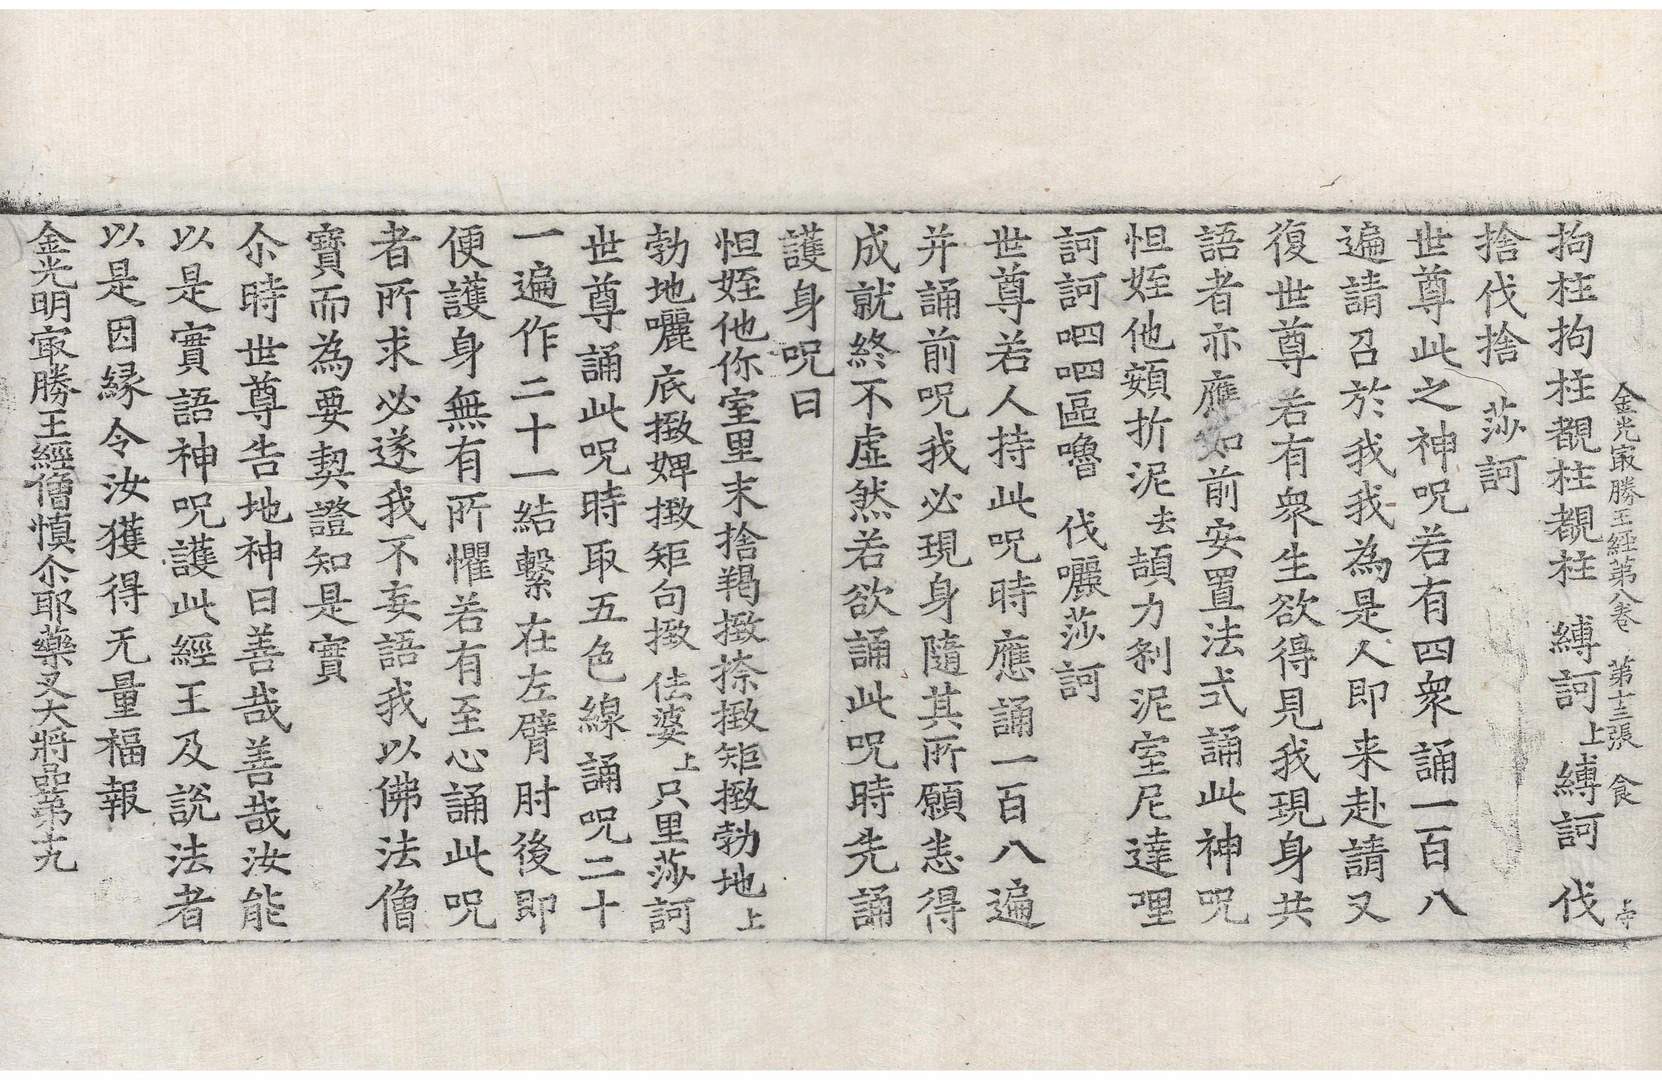 金光冣勝王經第八卷　第十三張　食
拘柱拘柱覩柱覩柱　縛訶上縛訶　伐
捨伐捨　莎訶
世尊此之神呪若有四衆誦一百八
遍請召於我我為是人即来赴請又
復世尊若有衆生欲得見我現身共
語者亦應如前安置法式誦此神呪
怛姪他頞折泥去頡力剎泥室尼達哩
訶訶呬呬區嚕　伐囉莎訶
世尊若人持此呪時應誦一百八遍
并誦前呪我必現身隨其所願悉得
成就終不虛然若欲誦此呪時先誦
護身呪曰
怛姪他你室里末捨羯㨖捺㨖矩㨖勃地上
勃地囉底㨖婢㨖矩句㨖　佉婆上只里莎訶
世尊誦此呪時取五色線誦呪二十
一遍作二十一結繫在左臂肘後即
便護身無有所懼若有至心誦此呪
者所求必遂我不妄語我以佛法僧
寶而為要契證知是實
尒時世尊告地神曰善哉善哉汝能
以是實語神呪護此經王及說法者
以是因緣令汝獲得无量福報
金光明冣勝王經僧慎尒耶藥叉大將品第十九